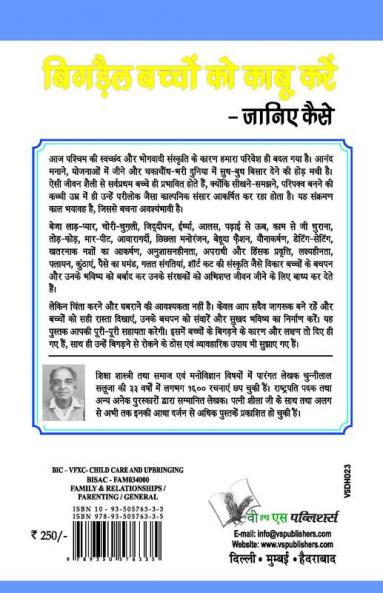 बिगड़ैल बच्चों को काबू करें
– जानिए कैसे
आज पश्चिम की स्वच्छंद और भोगवादी संस्कृति के कारण हमारा परिवेश ही बदल गया है। आनंद
मनाने, योजनाओं में जीने और चकाचौंध-भरी दुनिया में सुध-बुध बिसार देने की होड़ मची है।
ऐसी जीवन शैली से सर्वप्रथम बच्चे ही प्रभावित होते हैं, क्योंकि सीखने-समझने, परिपक्व बनने की
कच्ची उम्र में ही उन्हें परीलोक जैसा काल्पनिक संसार आकर्षित कर रहा होता है। यह संक्रमण
काल भयावह है, जिससे बचना अवश्यंभावी है।
बेजा लाड़-प्यार, चोरी-चुगली, जिद्दीपन, ईर्ष्या, आलस, पढ़ाई से ऊब, काम से जी चुराना,
तोड़-फोड़, मार-पीट, आवारागर्दी, छिछला मनोरंजन, बेहूदा फैशन, यौनाकर्षण, डेटिंग-सेटिंग,
खतरनाक नशों का आकर्षण, अनुशासनहीनता, अपराधी और हिंसक प्रवृत्ति, लक्ष्यहीनता,
पलायन, कुंठाएं, पैसे का घमंड, गलत संगतियां, शॉर्ट कट की संस्कृति जैसे विकार बच्चों के बचपन
और उनके भविष्य को बर्बाद कर उनके संरक्षकों को अभिशप्त जीवन जीने के लिए बाध्य कर देते
हैं।
लेकिन चिंता करने और घबराने की आवश्यकता नहीं है। केवल आप सदैव जागरूक बने रहें और
बच्चों को सही रास्ता दिखाएं, उनके बचपन को संवारें और सुखद भविष्य का निर्माण करें। यह
पुस्तक आपकी पूरी-पूरी सहायता करेगी। इसमें बच्चों के बिगड़ने के कारण और लक्षण तो दिए ही
गए हैं, साथ ही उन्हें बिगड़ने से रोकने के ठोस एवं व्यावहारिक उपाय भी सुझाए गए हैं।
शिक्षा शास्त्री तथा समाज एवं मनोविज्ञान विषयों में पारंगत लेखक चुन्नीलाल
सलूजा की ३३ वर्षों में लगभग १६०० रचनाएं छप चुकी हैं। राष्ट्रपति पदक तथा
अन्य अनेक पुरस्कारों द्वारा सम्मानित लेखक। पत्नी शीला जी के साथ तथा अलग
से अभी तक इनकी आधा दर्जन से अधिक पुस्तकें प्रकाशित हो चुकी हैं।
BIC – VFXC- CHILD CARE AND UPBRINGING
BISAC - FAM034000
FAMILY & RELATIONSHIPS /
PARENTING / GENERAL
ISBN 10 - 93-505763-3-3
ISBN 978-93-505763-3-5
₹ 250/-
9 789350 576335
वी एण्ड एस पब्लिशर्स
E-mail: info@vspublishers.com
Website: www.vspublishers.com
दिल्ली • मुम्बई • हैदराबाद
VSDH023